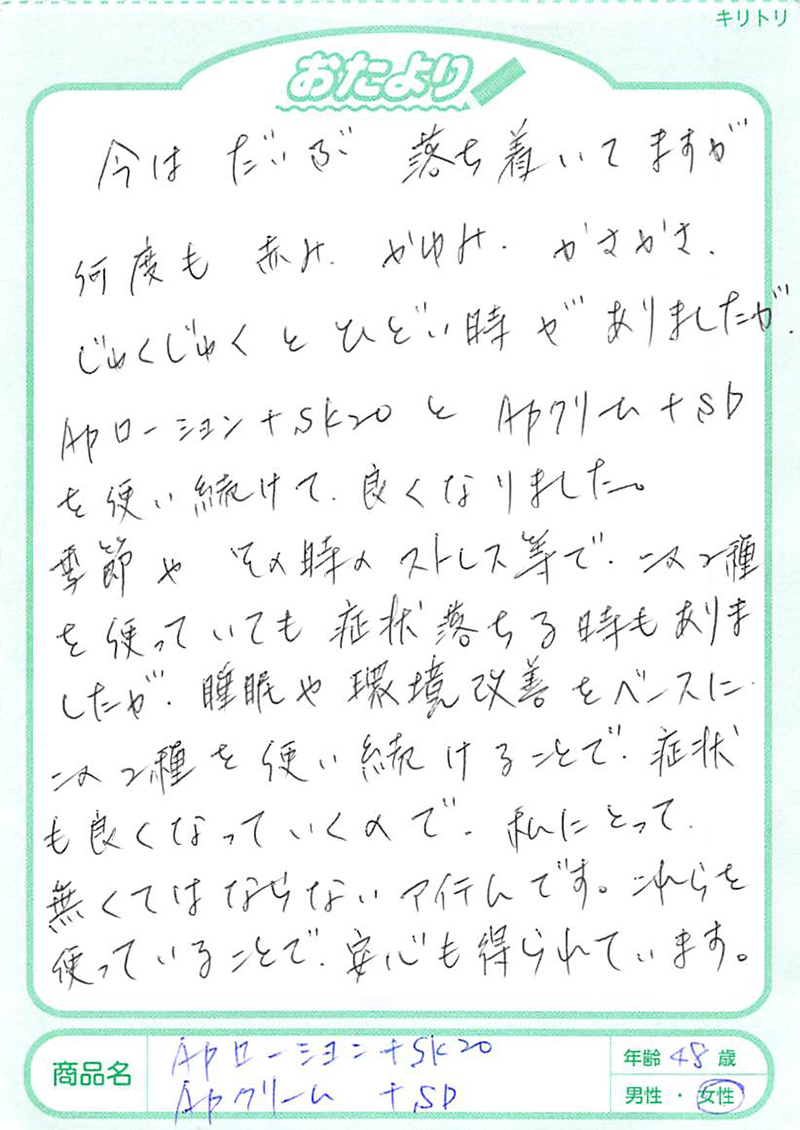 キリトリ
おたより
今は だいぶ 落ち着いてますが
何度も 赤み、かゆみ、かさかさ、
じゅくじゅくとひどい時がありましたが、
APローション+SK20 と APクリーム+SD
を使い続けて、良くなりました。
季節や その時のストレス等で、この2種
を使っていても 症状落ちる時もありま
したが、睡眠や環境改善をベースに、
この2種を使い続けることで、症状
も良くなっていくので、私にとって、
無くてはならないアイテムです。これらを
使っていることで、安心も得られています。
商品名
APローション+SK20
APクリーム +SD
年齢 48 歳
男性・女性